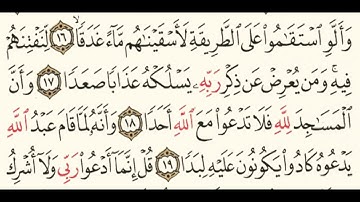 وَأَلَّوِ ٱسْتَقَٰمُوا۟ عَلَى ٱلطَّرِيقَةِ لَأَسْقَيْنَٰهُم مَّآءً غَدَقًا ١٦ لِّنَفْتِنَهُمْ
فِيهِ وَمَن يُعْرِضْ عَن ذِكْرِ رَبِّهِۦ يَسْلُكْهُ عَذَابًا صَعَدًا ١٧ وَأَنَّ
ٱلْمَسَٰجِدَ لِلَّهِ فَلَا تَدْعُوا۟ مَعَ ٱللَّهِ أَحَدًا ١٨ وَأَنَّهُۥ لَمَّا قَامَ عَبْدُ ٱللَّهِ
يَدْعُوهُ كَادُوا۟ يَكُونُونَ عَلَيْهِ لِبَدًا ١٩ قُلْ إِنَّمَآ أَدْعُوا۟ رَبِّى وَلَآ أُشْرِكُ